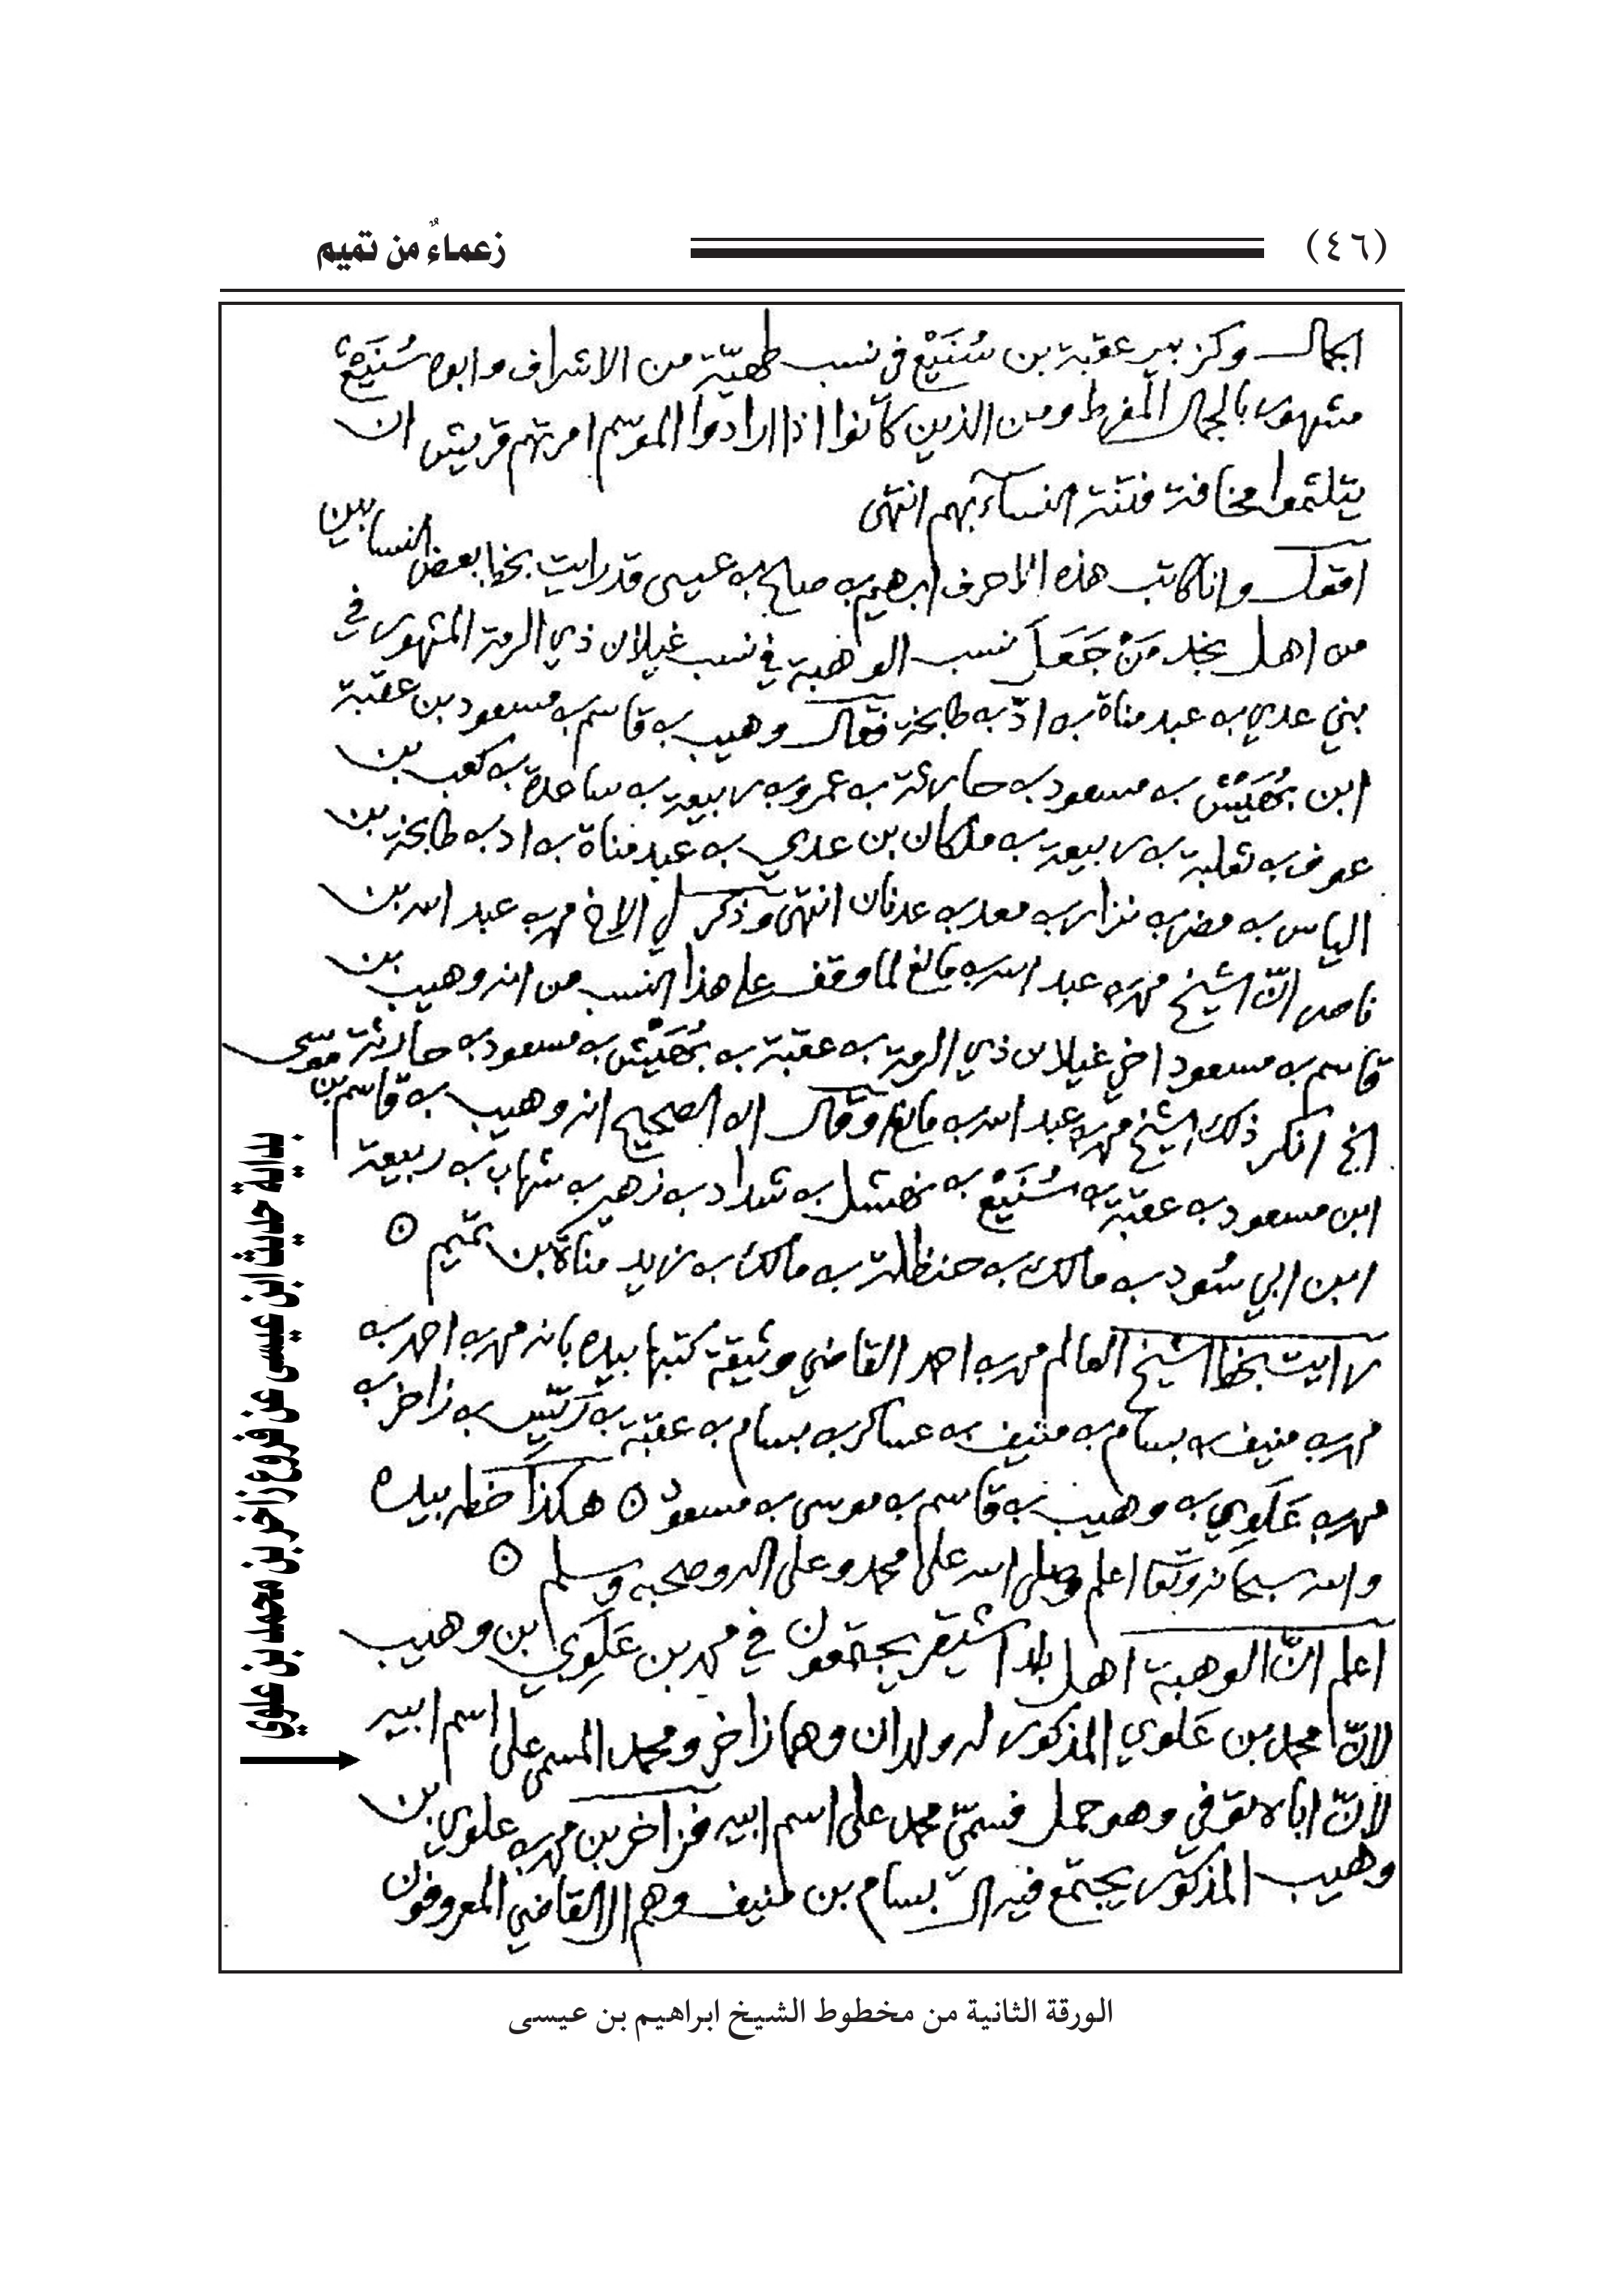 (٤٦)
زعماءٌ من تميم
الجمال وكزبير عقبة بن سُنَيْع في نسب طهيّة من الاشراف وابوه سُنَيْع
مشهور بالجمال المفرط ومن الذين كانوا اذا ارادوا الموسم امرتهم قريش ان
يتلثموا مخافة فتنة النسآء بهم انتهى
اقول وانا كاتب هذه الاحرف ابرهيم بن صالح بن عيسى قد رايت بخط بعض النسابين
من اهل نجد مَنْ جَعَلَ نسب الوهبة في نسب غيلان ذي الرمة المشهور في
بني عدي بن عبد مناة بن ادّ بن طابخة فقال وهيب بن قاسم بن مسعود بن عقبة
ابن بُهَيْش بن مسعود بن حارثة بن عمرو بن ربيعة بن ساعدة بن كعب بن
عوف بن ثعلبة بن ربيعة بن ملكان بن عدي بن عبد مناة بن اد بن طابخة بن
الياس بن مضر بن نزار بن معد بن عدنان انتهى وذكر لي الاخ محمد بن عبد الله بن
ناصر انّ الشيخ محمد بن عبد الله بن مانع لما وقف على هذا النسب من انه وهيب بن
قاسم بن مسعود اخي غيلان ذي الرمة بن عقبة بن بُهَيْش بن مسعود بن حارثة
الخ انكر ذلك الشيخ محمد بن عبد الله بن مانع وقال ان الصحيح انه وهيب بن قاسم بن موسى
ابن مسعود بن عقبة بن سُنَيْع بن نهشل بن شداد بن زهير بن شهاب بن ربيعة
ابن ابي سُود بن مالك بن حنظلة بن مالك بن زيد مناة بن تميم
رايت بخط الشيخ العالم محمد بن احمد القاضي وثيقة كتبها بيده بانه محمد بن احمد بن
محمد بن منيف بن بسام بن منيف بن عساكر بن بسام بن عقبة بن رَيّس بن زاخر بن
محمد بن عَلَوِي بن وهيب بن قاسم بن موسى بن مسعود هكذا خطه بيده
والله سبحانه وتعا اعلم وصلى الله على محمد وعلى اله وصحبه وسلم
اعلم انّ الوهبة اهل بلد اشيقر يجتمعون في محمد بن عَلَوِي ابن وهيب
لانّ محمد بن عَلَوي المذكور له ولدان وهما زاخر ومحمد المسمى على اسم ابيه
لانّ اباه توفي وهو حمل فسمّي محمد على اسم ابيه فزاخر بن محمد بن علوي بن
وهيب المذكور يجتمع فيه ال بسام بن منيف وهم ال القاضي المعروفون
بداية حديث ابن عيسى عن فروع زاخر بن محمد بن علوي
الورقة الثانية من مخطوط الشيخ ابراهيم بن عيسى